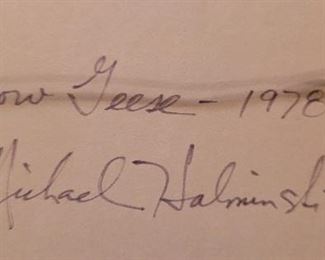 ow Geese - 1978
Michael Halminski